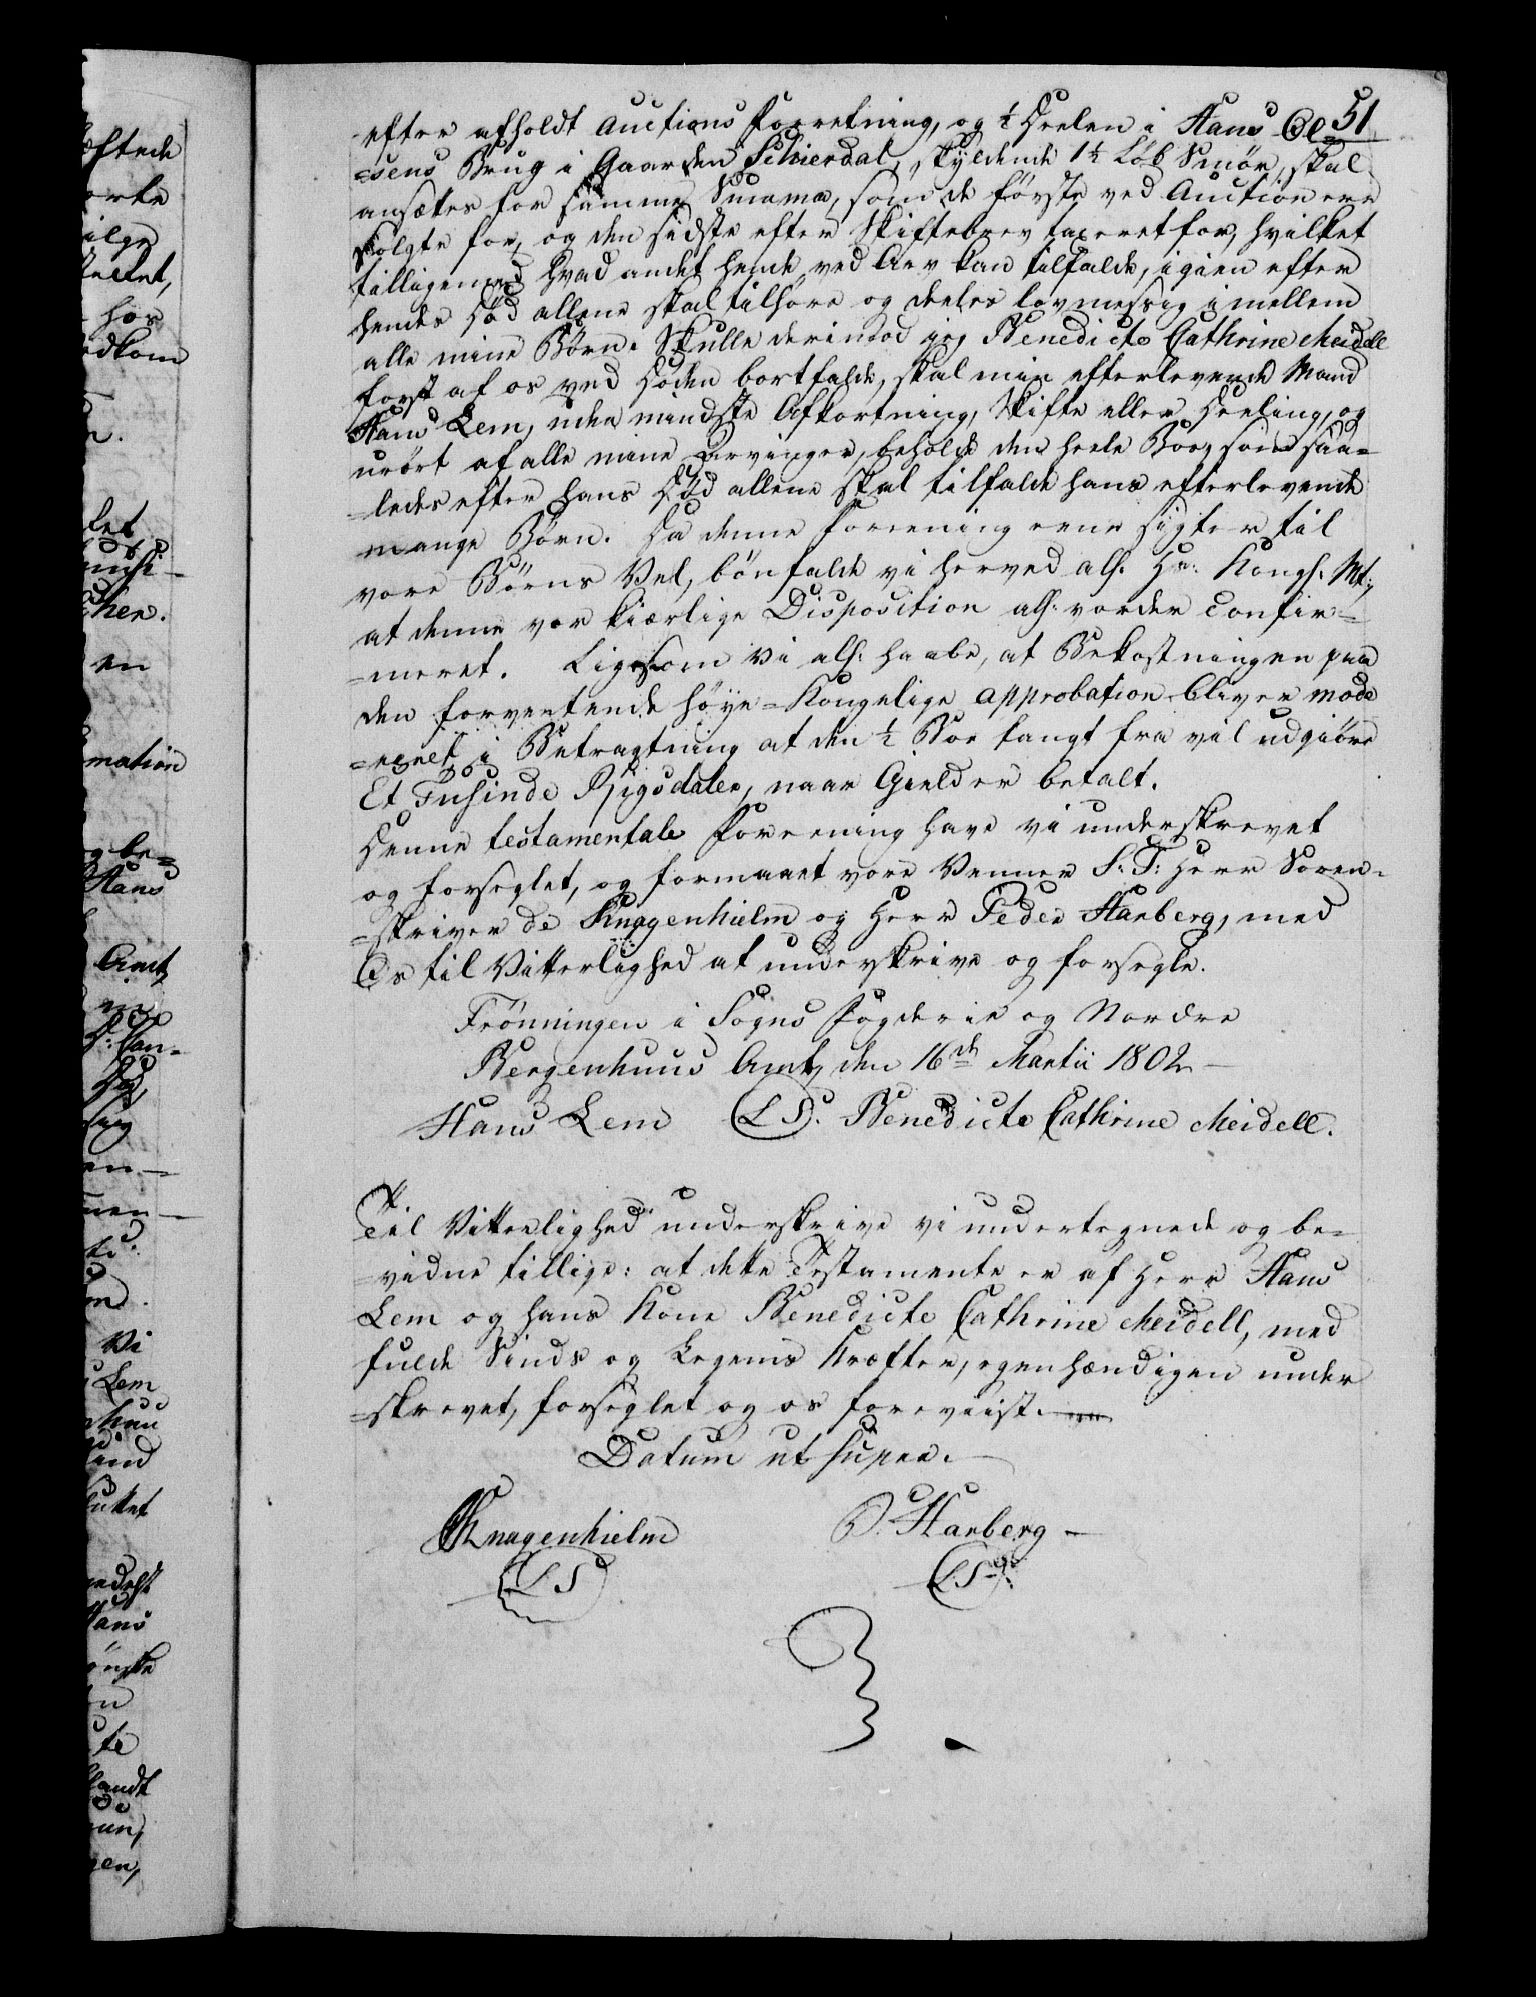 51
efter afholdt Auctions Forretning, og ½ Deelen i Hans Ol=
=sens Brug i Gaarden Selvierdal, skyldende 1½ Løb Smør, skal
ansættes for samme Summa, som de første ved Auction ere
solgte for, og den sidste efter Skiftebrev taxeret for, hvilket
tilligemed hvad andet hende ved Arv kan tilfalde, igien efter
hendes Død allene skal tilhøre og deeles lovmessig imellem
alle mine Børn. Skulle derimod jeg Benedicte Cathrine Meidell
først af os ved Døden bortfalde, skal min efterlevende Mand
Hans Lem, uden mindste Afkortning, Skifte eller Deeling, og
urørt af alle mine Arvinger, beholde den heele Boe, som saa=
=ledes efter hans Død allene skal tilfalde hans efterlevende
mange Børn. Da denne Foreening eene sigter til
vore Børns Vel, bønfalde vi herved all. Hr: Kongl. Mt:,
at denne vor kiærlige Disposition all: vorder Confir=
=meret. Ligesom vi all: haabe, at Bekostningen paa
den forventende høye=Kongelige Approbation bliver mode
=reret i Betragtning at den ½ Boe langt fra vil udgiøre
Et Tusinde Rigsdaler, naar Gield er betalt.
Denne testamentale Foreening have vi underskrevet
og forseglet, og formaaet vore Venner S: T: Herr Soren=
=skriver de Knagenhielm og Herr Peder Harberg, med
Os til Vitterlighed at underskrive og forsegle.
Frønningen i Sogns Fogderie og Nordre
Bergenhuus Amt, den 16de Martii 1802
Hans Lem (LS). Benedicte Cathrine Meidell.
Til Vitterlighed underskrive vi undertegnede og be=
=vidne tillige: at dette Testamente er af Herr Hans
Lem og hans Kone Benedicte Cathrine Meidell, med
fulde Sinds og Legems Kræfter, egenhændigen under
=skrevet, forseglet og os foreviist.
Datum ut supra.
Knagenhielm P. Harberg
(LS) (LS)